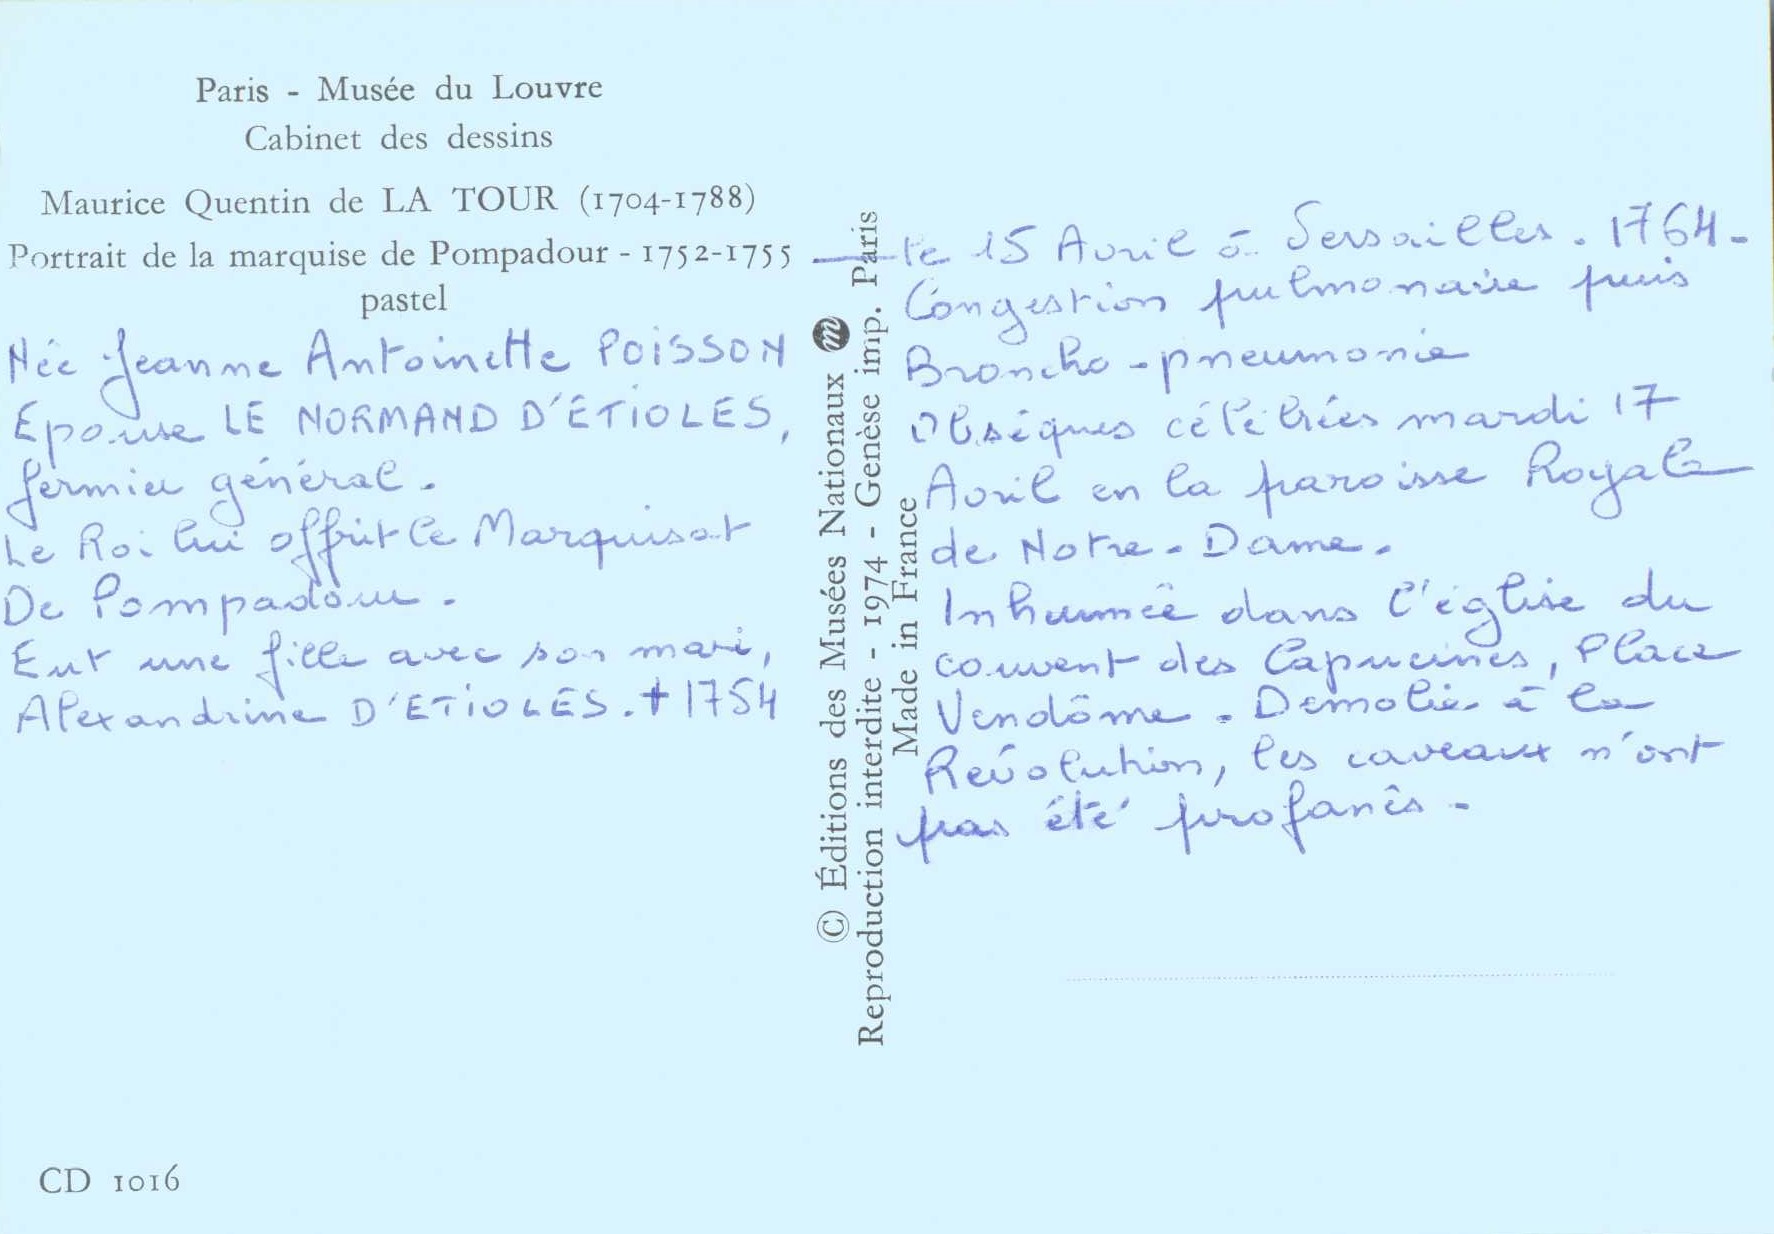 Paris - Musée du Louvre
Cabinet des dessins
Maurice Quentin de LA TOUR (1704-1788)
Portrait de la marquise de Pompadour - 1752-1755
pastel
Née Jeanne Antoinette POISSON
Epouse LE NORMAND D'ETIOLES,
fermier général.
Le Roi lui offrit le Marquisat
De Pompadour.
Eut une fille avec son mari,
Alexandrine D'ETIOLES. † 1754
CD 1016
© Éditions des Musées Nationaux m
Reproduction interdite - 1974 - Genèse imp. Paris
Made in France
le 15 Avril à Versailles. 1764-
Congestion pulmonaire puis
Broncho-pneumonie
Obsèques célébrées mardi 17
Avril en la paroisse Royale
de Notre-Dame.
Inhumée dans l'église du
couvent des Capucines, Place
Vendôme. Démolie à la
Révolution, les caveaux n'ont
pas été profanés -